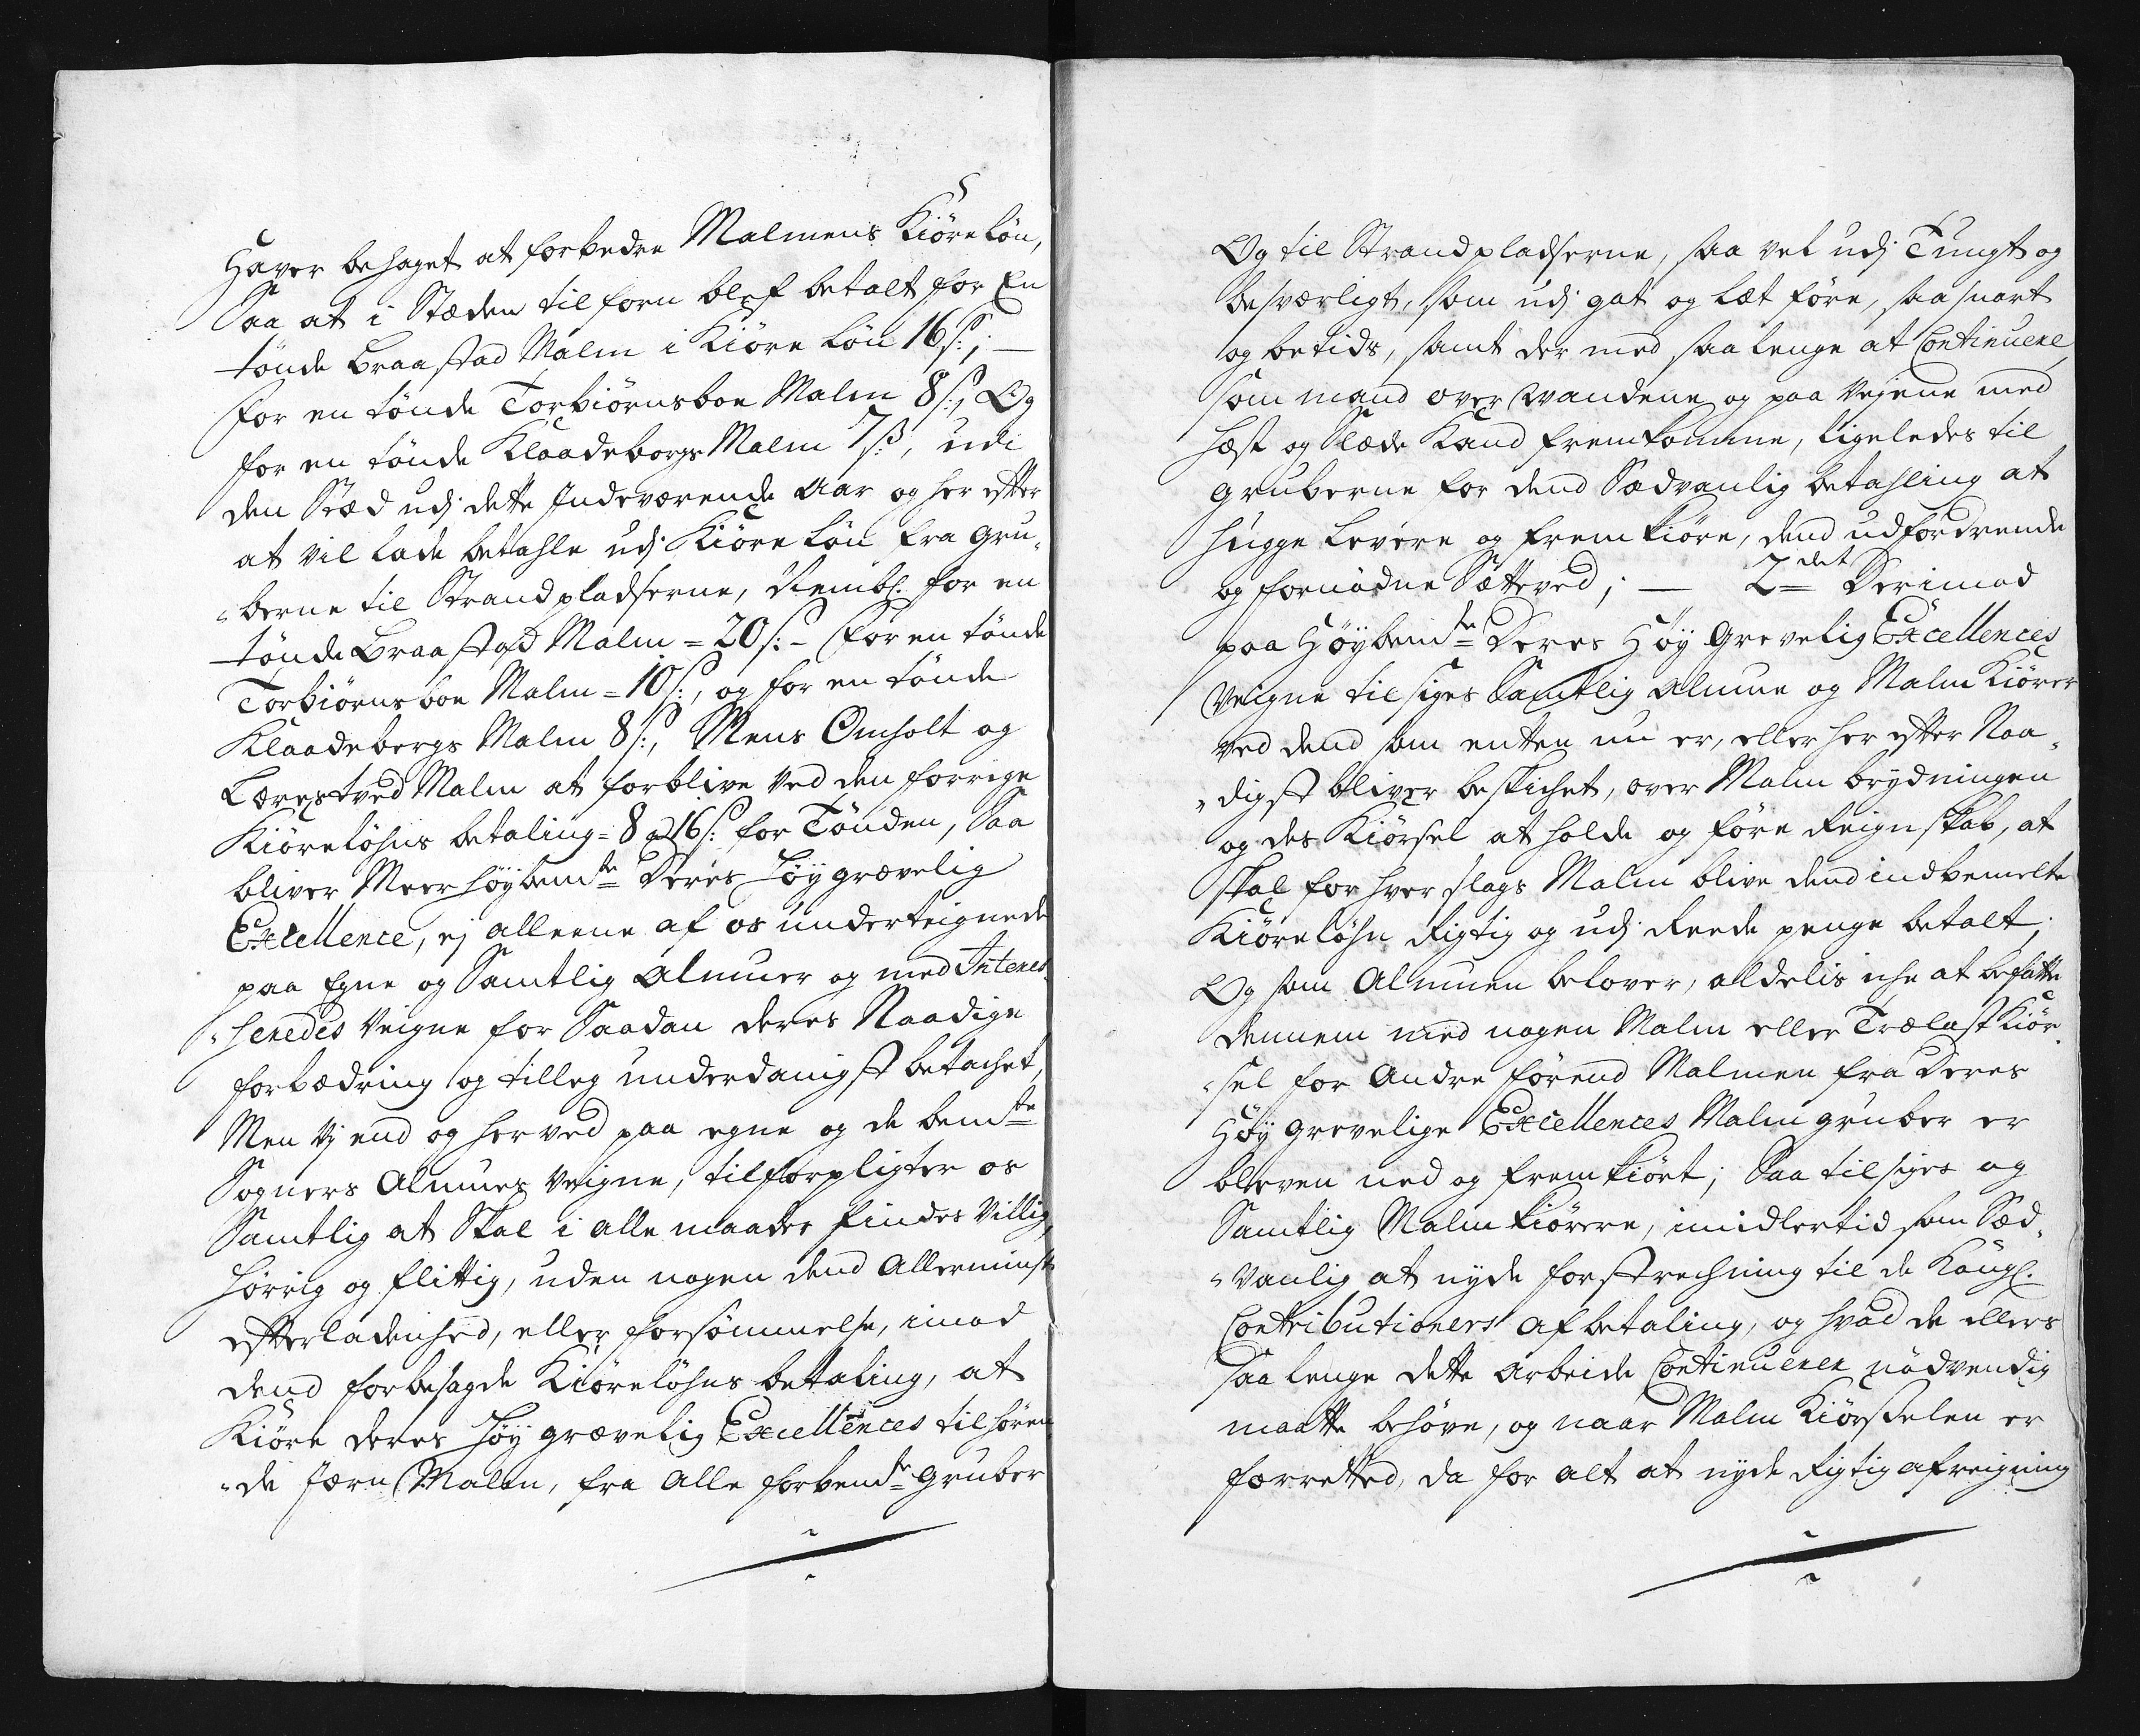 Haver behaget at forbedre Malmens Kiöreløn,
Saa at i Stæden tilforn blef betalt for En
tönde Braastad Malm i Kiöre Lön 16 s:; —
for en tönde Torbiörnsboe Malm 8 s:, Og
for en tönde Klaadeborgs Malm 7 ß:, udi
den Stæd udj dette Indeværende Aar og her efter
at vil lade betahle udj Kiöre Lön fra Gru-
"berne til Strandpladserne, Nembl. for en
tönde Braastad Malm = 20 s: - for en tönde
Torbiörnsboe Malm = 10 s:, og for en tönde
Klaadebergs Malm 8 s:, Mens Omholt og
Lærestved Malm at forblive ved den forrige
Kiörelöhns betaling = 8 a 16 s: for Tönden, Saa
bliver Meerhöybemte Deres Höygrævelig
Excellence, ej alleene af os underteignede
paa Egne og Samtlig Almuer og med Interes-
"senedes Veigne for Saadan deres Naadige
forbædring og tilleg underdanigst betachet,
Men Vj end og herved paa egne og de bemte
Sogners Almues Veigne, tilforpligter os
Samtlig at Skal i alle maader findes Villig,
hörrig og flittig, uden nogen dend Allerminste
efterladenhed, eller forsömmelse, imod
dend forbesagde Kiörelöhns betaling, at
Kiöre deres Höy grævelig Excellences tilhören
"de Jærn Malm, fra Alle forbemte Gruber
Og til Strandpladserne, saa vel udj Tungt og
besværligt, som udj gat og læt före, saa snart
og betids, samt der med saa lenge at Continuere
som mand over Vandene og paa Vejene med
Hæst og Slæde Kand fremkomme, ligeledes til
Gruberne for dend Sædvanlig betahling at
hugge levere og fremkiöre, dend udfordrende
og fornödne Sætteved; — 2det Derimod
paa Höybemte Deres Höy Grevelig Excellences
Veigne tilsiges Samtlig Almue og Malm Kiörer
ved dend som enten nu er, eller her efter Naa-
"digst bliver beskichet, over Malm brydningen
og des Kiörsel at holde og före Reignskab, at
skal for hver slags Malm blive dend indbemelte
Kiörelöhn Rigtig og udj Reede penge betalt;
Og som Almuen belover, aldelis iche at befatte
dennem med nogen Malm eller Trælast Kiör-
"sel for Andre förend Malmen fra Deres
Höy Grevelige Excellences Malm gruber er
bleven ned og fremkiört; Saa tilsiges og
Samtlig Malm kiörere, imidlertid som Sæd-
"vanlig at nyde forstrechning til de Kongl.
Contributioners Afbetaling, og hvad de ellers
Saa lenge dette Arbeide Continuerer nödvendig
maatte behöve, og naar Malm Kiörselen er
forretted, da for alt at nyde Rigtig afreigning